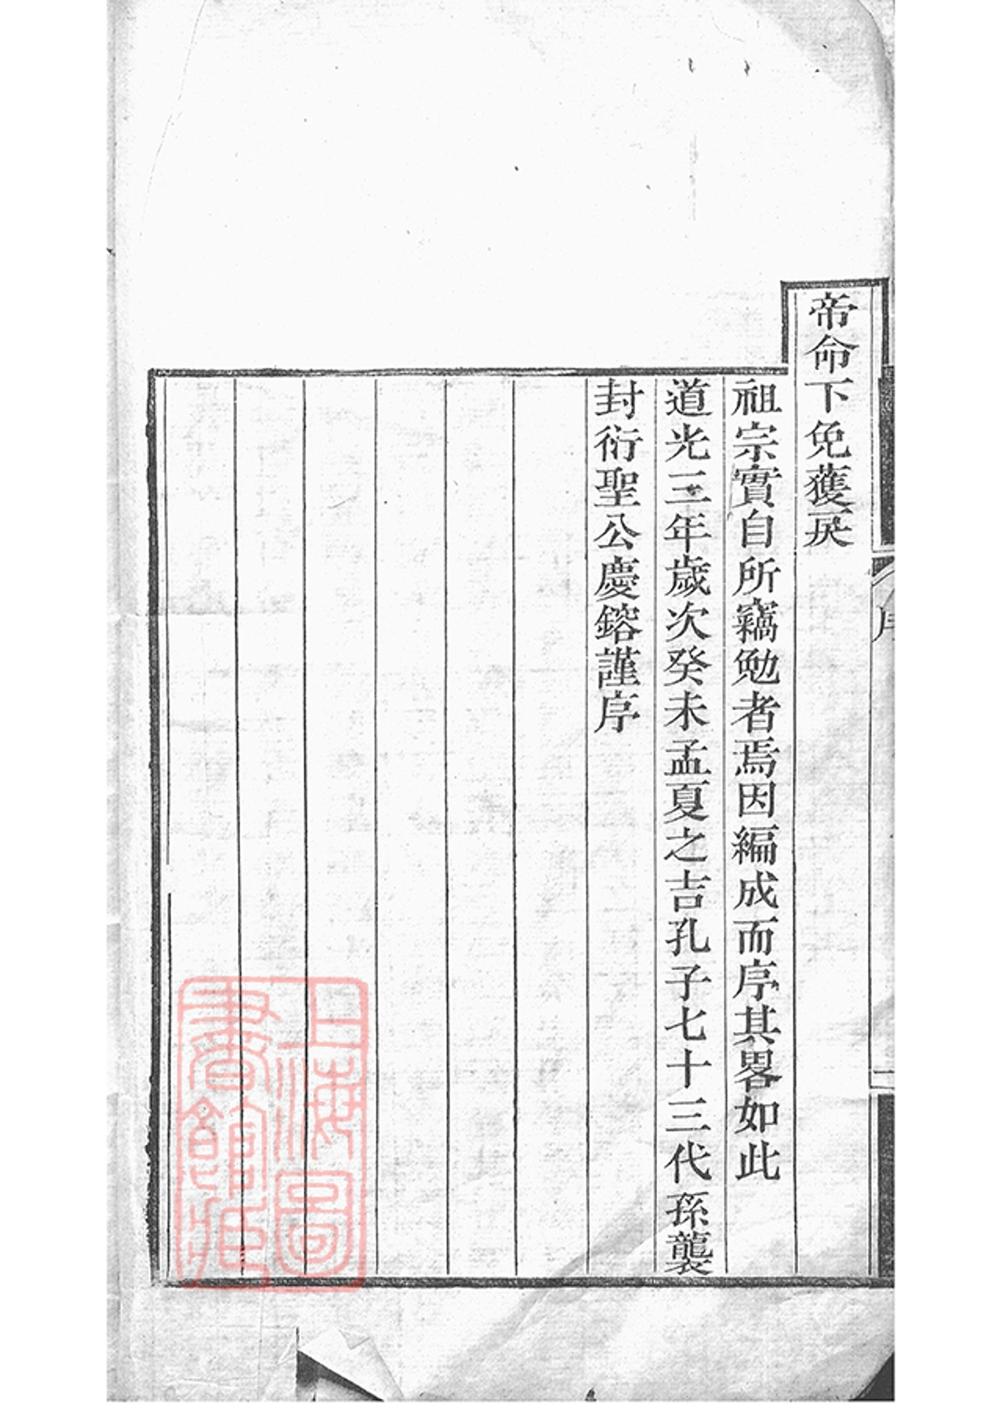 帝命下免獲戾
祖宗實自所竊勉者焉因編成而序其畧如此
道光三年歲次癸未孟夏之吉孔子七十三代孫襲
封衍聖公慶鎔謹序
序
一
上海圖
書館藏